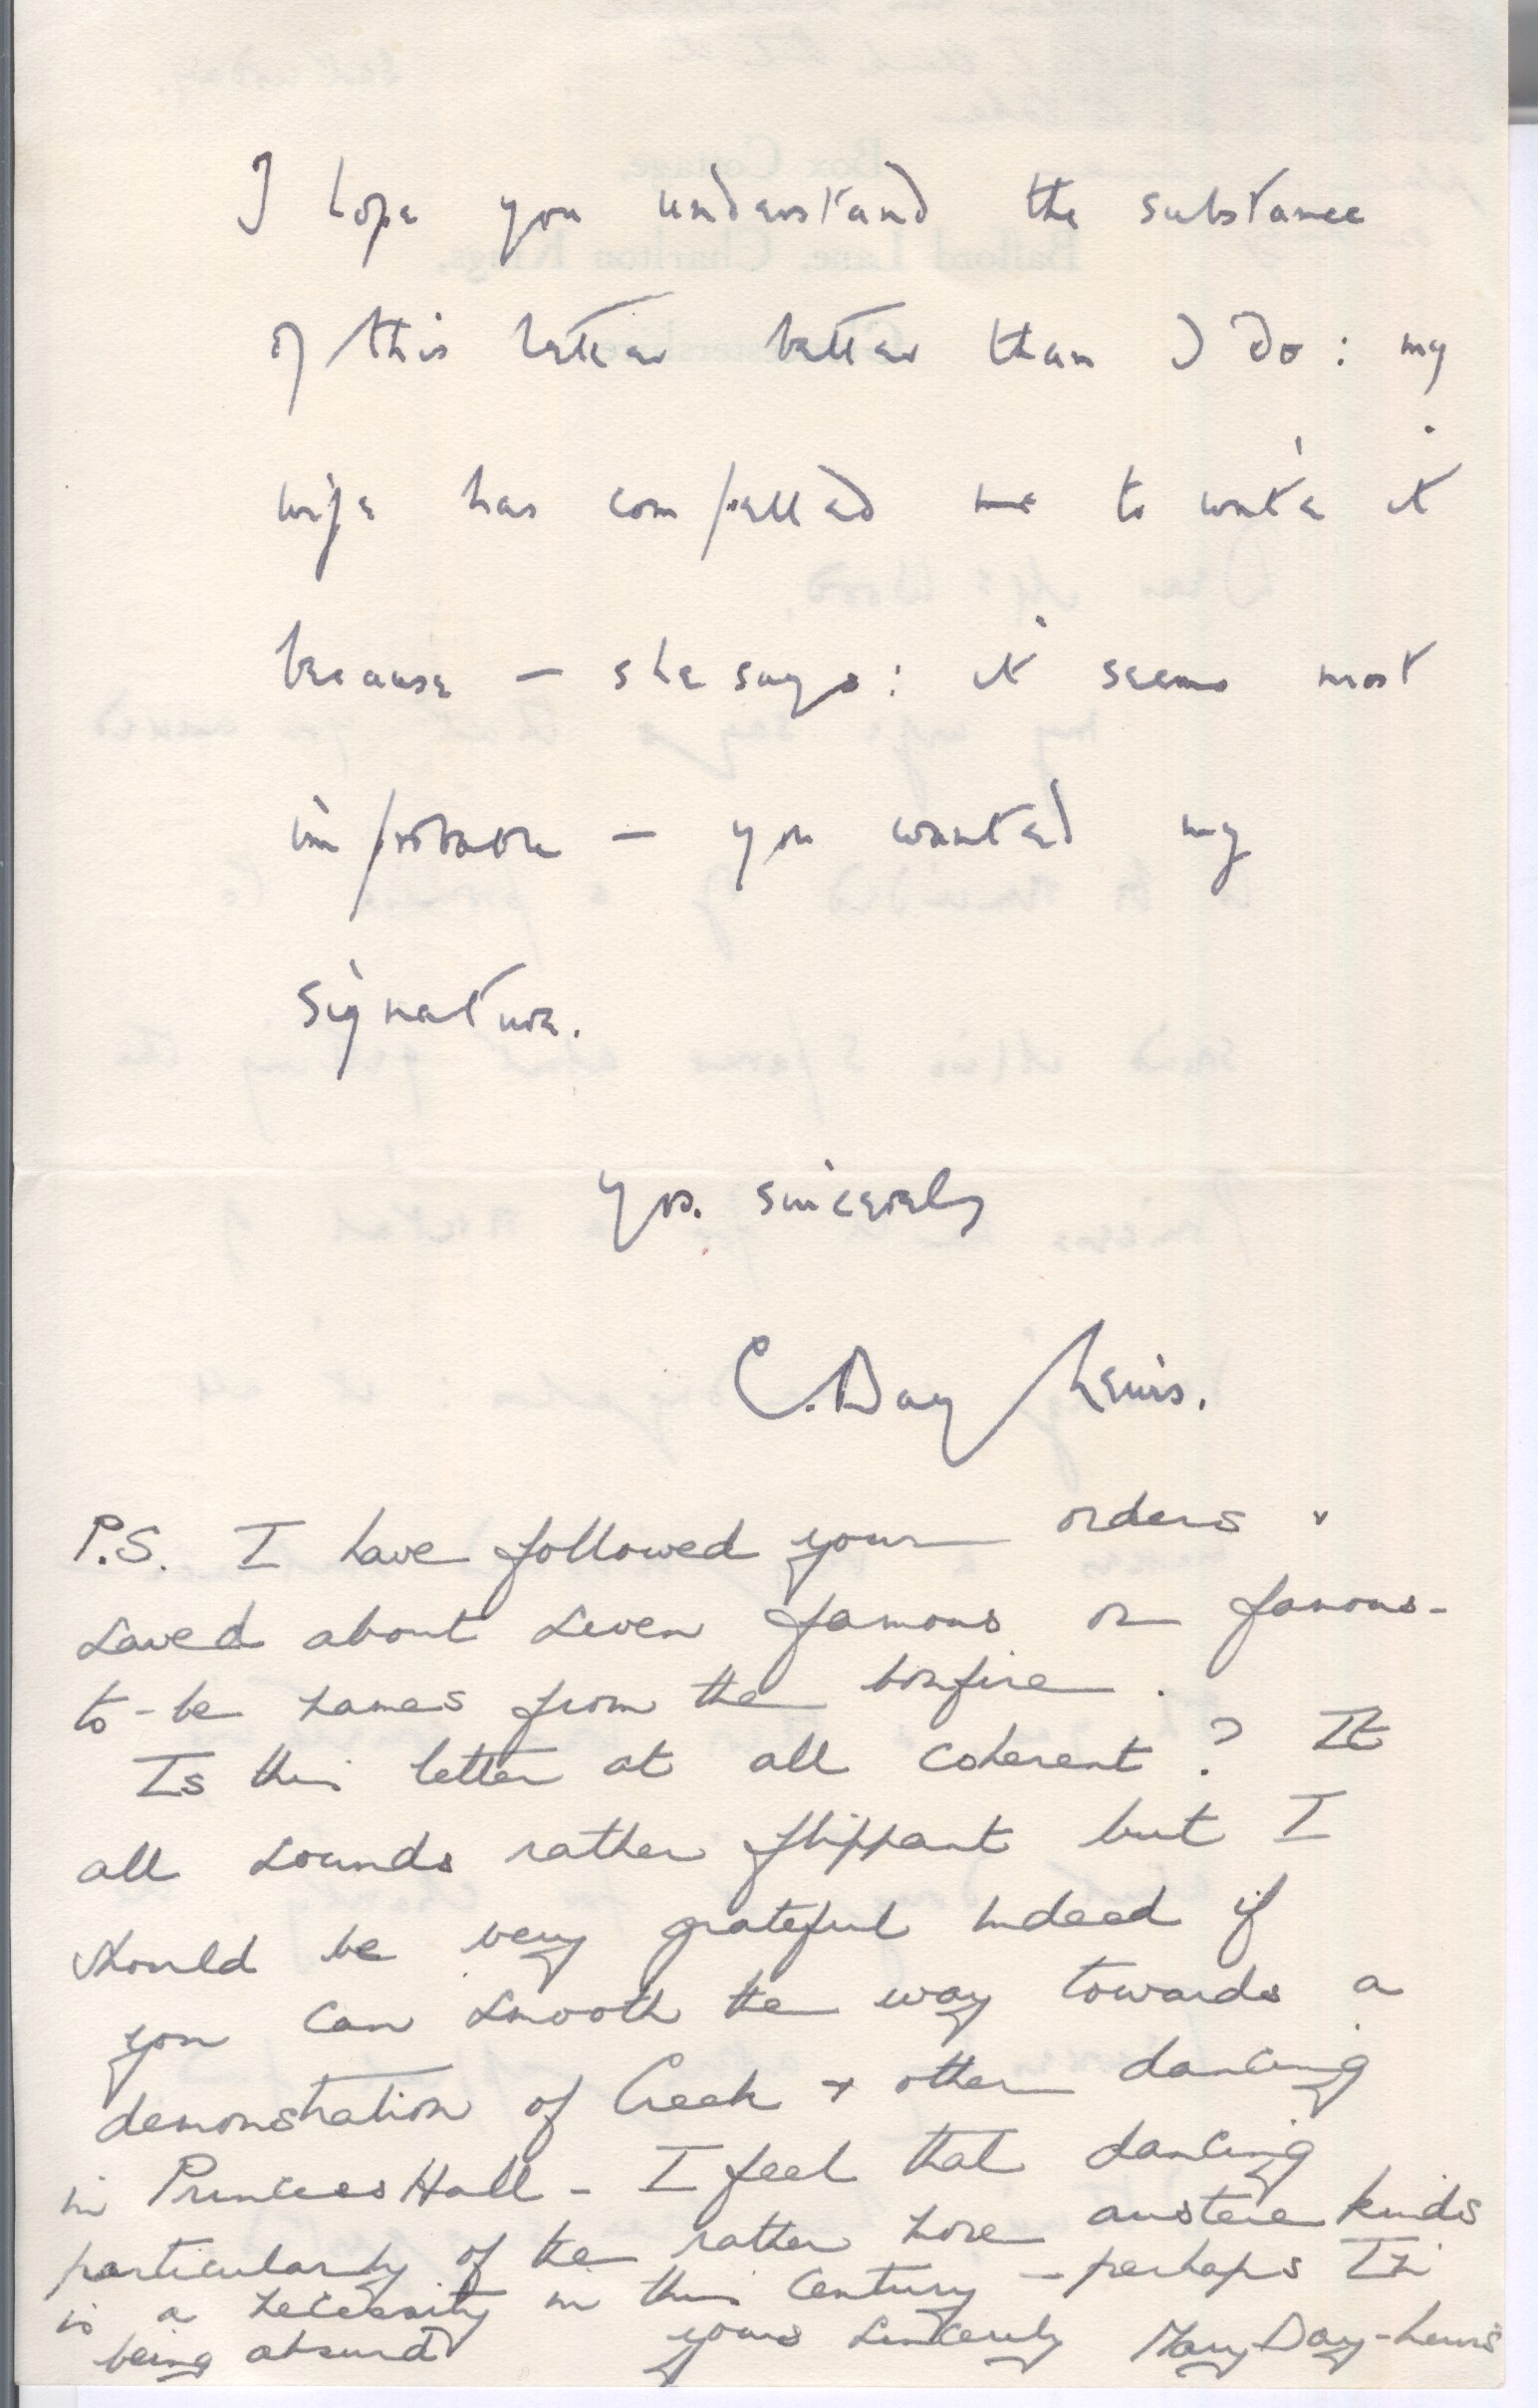 I hope you understand the substance
of this letter better than I do: my
wife has compelled me to write it
because – she says: it seems most
improbable – you wanted my
signature.
Yrs. sincerely
C. Day Lewis.
P.S. I have followed your orders &
saved about seven famous or famous-
to-be names from the bonfire.
Is this letter at all coherent? It
all sounds rather flippant but I
should be very grateful indeed if
you can smooth the way towards a
demonstration of Greek & other dancing
in Princess Hall – I feel that dancing
particularly of the rather more austere kinds
is a necessity in this century – perhaps I'm
being absurd yours sincerely Mary Day-Lewis